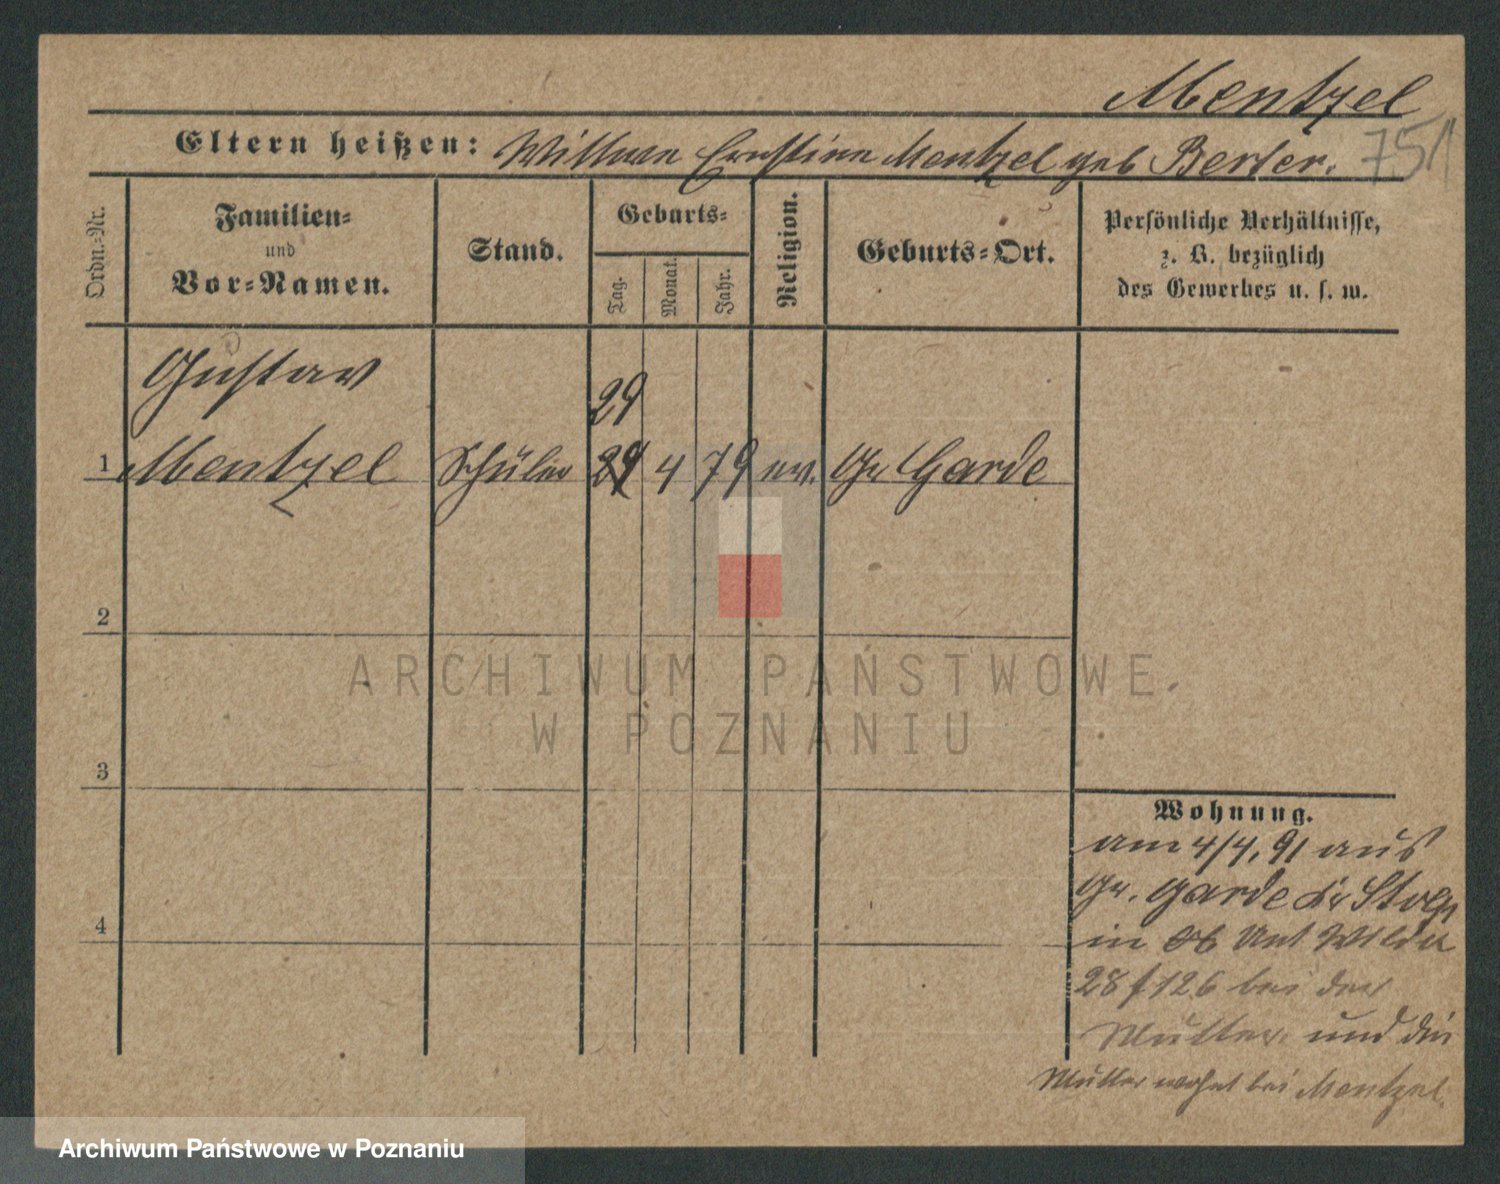 Mentzel
751
Eltern heißen: Wittwe Ernstine Mentzel geb
Ordn.=Nr.
Familien=
und
Vor=Namen.
Stand.
Geburts=
Tag.
Monat.
Jahr.
Religion.
Geburts=Ort.
Persönliche Verhältnisse,
z. B. bezüglich
des Gewerbes u. s. w.
Gustav
29
1 Mentzel Schüler 29 4 79 ev. Gr Garde
2
3
4
Wohnung.
am 4/4. 91 aus
Gr. Garde Kr Stolp
in Wilda
28 f 126 bei der
Mutter und die
Mutter wohnt bei Mentzel.
ARCHIWUM PAŃSTWOWE
W POZNANIU
Archiwum Państwowe w Poznaniu